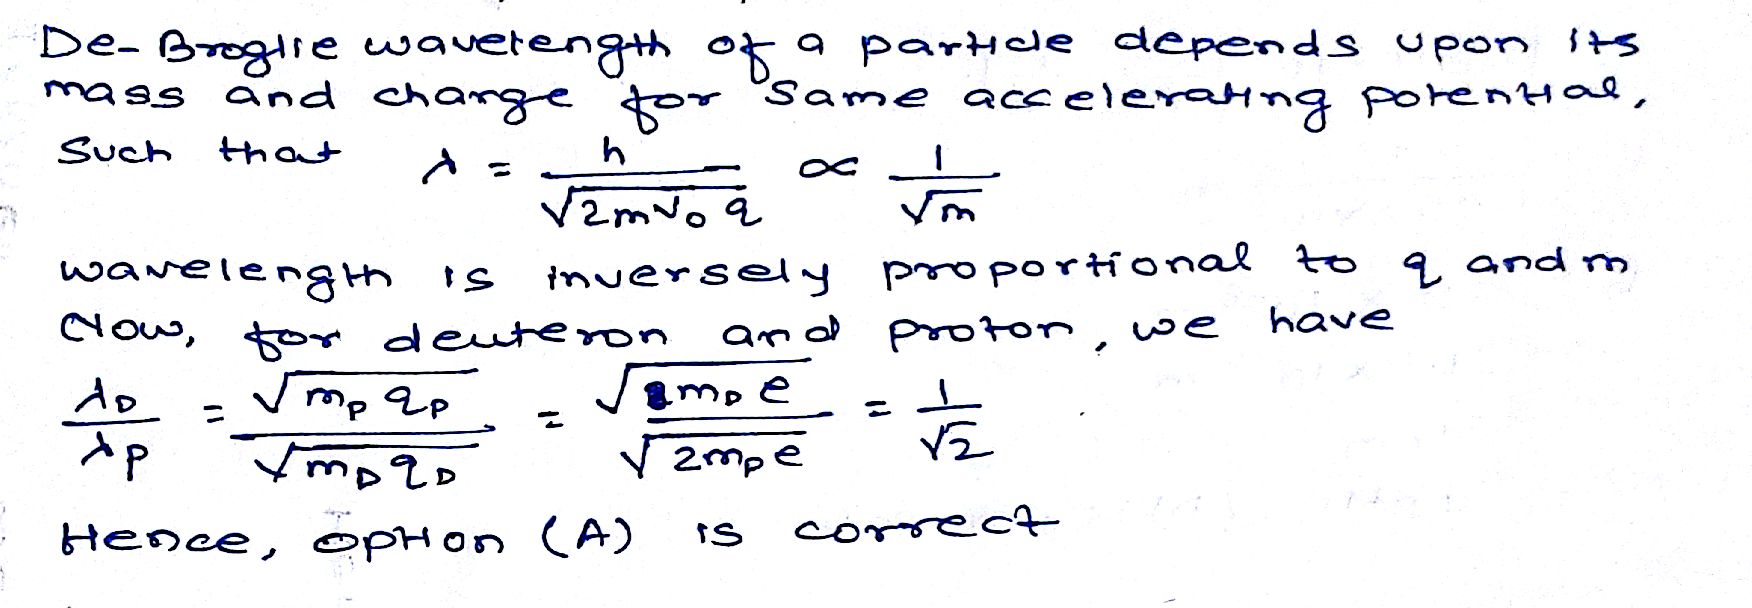 De-Broglie wavelength of a particle depends upon its
mass and charge for same accelerating potential,
Such that λ = h / √2mV₀q ∝ 1 / √m
wavelength is inversely proportional to q and m
Now, for deuteron and proton, we have
λD / λP = √mp qp / √mD qD = √mp e / √2mp e = 1 / √2
Hence, option (A) is correct